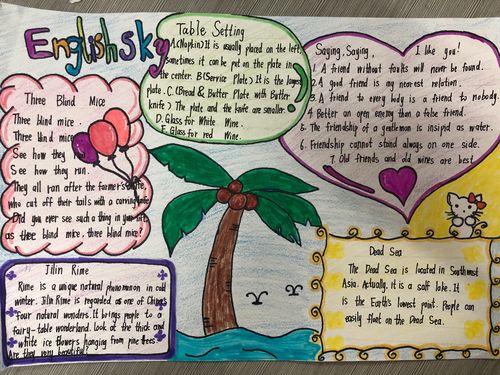 English sky
Three Blind Mice
Three blind mice.
Three blind mice
See how they run
See how they run.
They all ran after the farmer's wife,
who cut off their tails with a carving knife,
Did you ever see such a thing in your life,
as three blind mice, three blind mice?
Table Setting
A.(Napkin) It is usually placed on the left,
sometimes it can be put on the plate in
the center. B(Service Plate) It is the largest
plate. C.(Bread & Butter Plate with Butter
knife) The plate and the knife are smaller.
D. Glass for White Wine.
E. Glass for red Wine.
Saying, Saying, I like you!
1. A friend without faults will never be found.
2. A good friend is my nearest relation.
3. A friend to every body is a friend to nobody.
4 Better an open enemy than a false friend.
5. The friendship of a gentleman is insipid as water.
6. Friendship cannot stand always on one side.
7. Old friends and old wines are best.
Jilin Rime
Rime is a unique natural phenomenon in cold
winter. Jilin Rime is regarded as one of China's
four natural wonders. It brings people to a
fairy-table wonderland. Look at the thick and
white ice flowers hanging from pine trees
Are they very beautiful?
Dead Sea
The Dead Sea is located in Southwest
Asia. Actually, it is a salt lake. It
is the Earth's lowest point. People can
easily float on the Dead Sea.